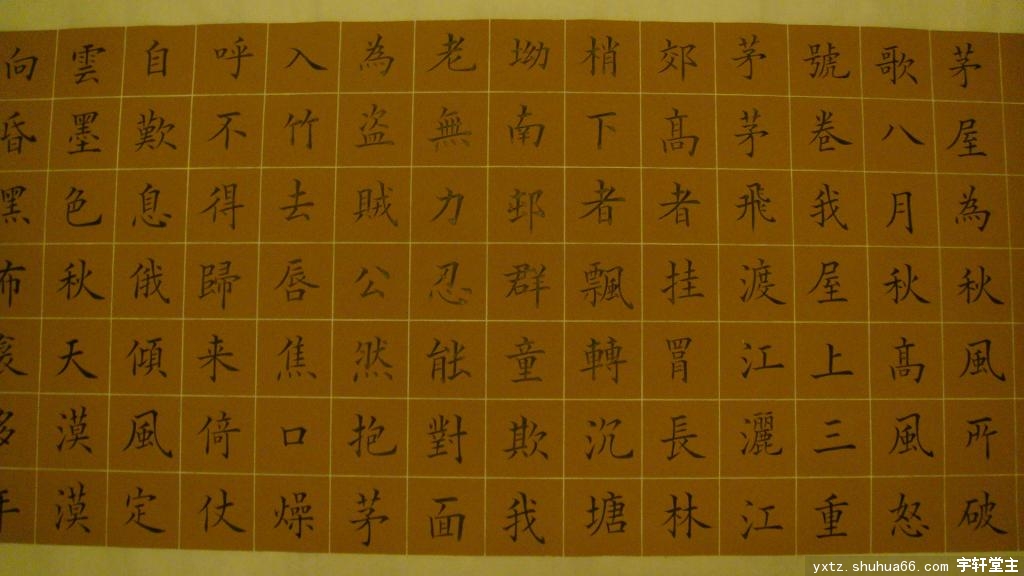 茅屋為秋風所破
歌八月秋髙風怒
號卷我屋上三重
茅茅飛渡江灑江
郊髙者挂罥長林
梢下者飄轉沉塘
坳南邨群童欺我
老無力忍能對面
為盜賊公然抱茅
入竹去唇焦口燥
呼不得歸来倚仗
自歎息俄傾風定
雲墨色秋天漠漠
向昏黑布衾多年
yxtz.shuhua66.com 宇轩堂主